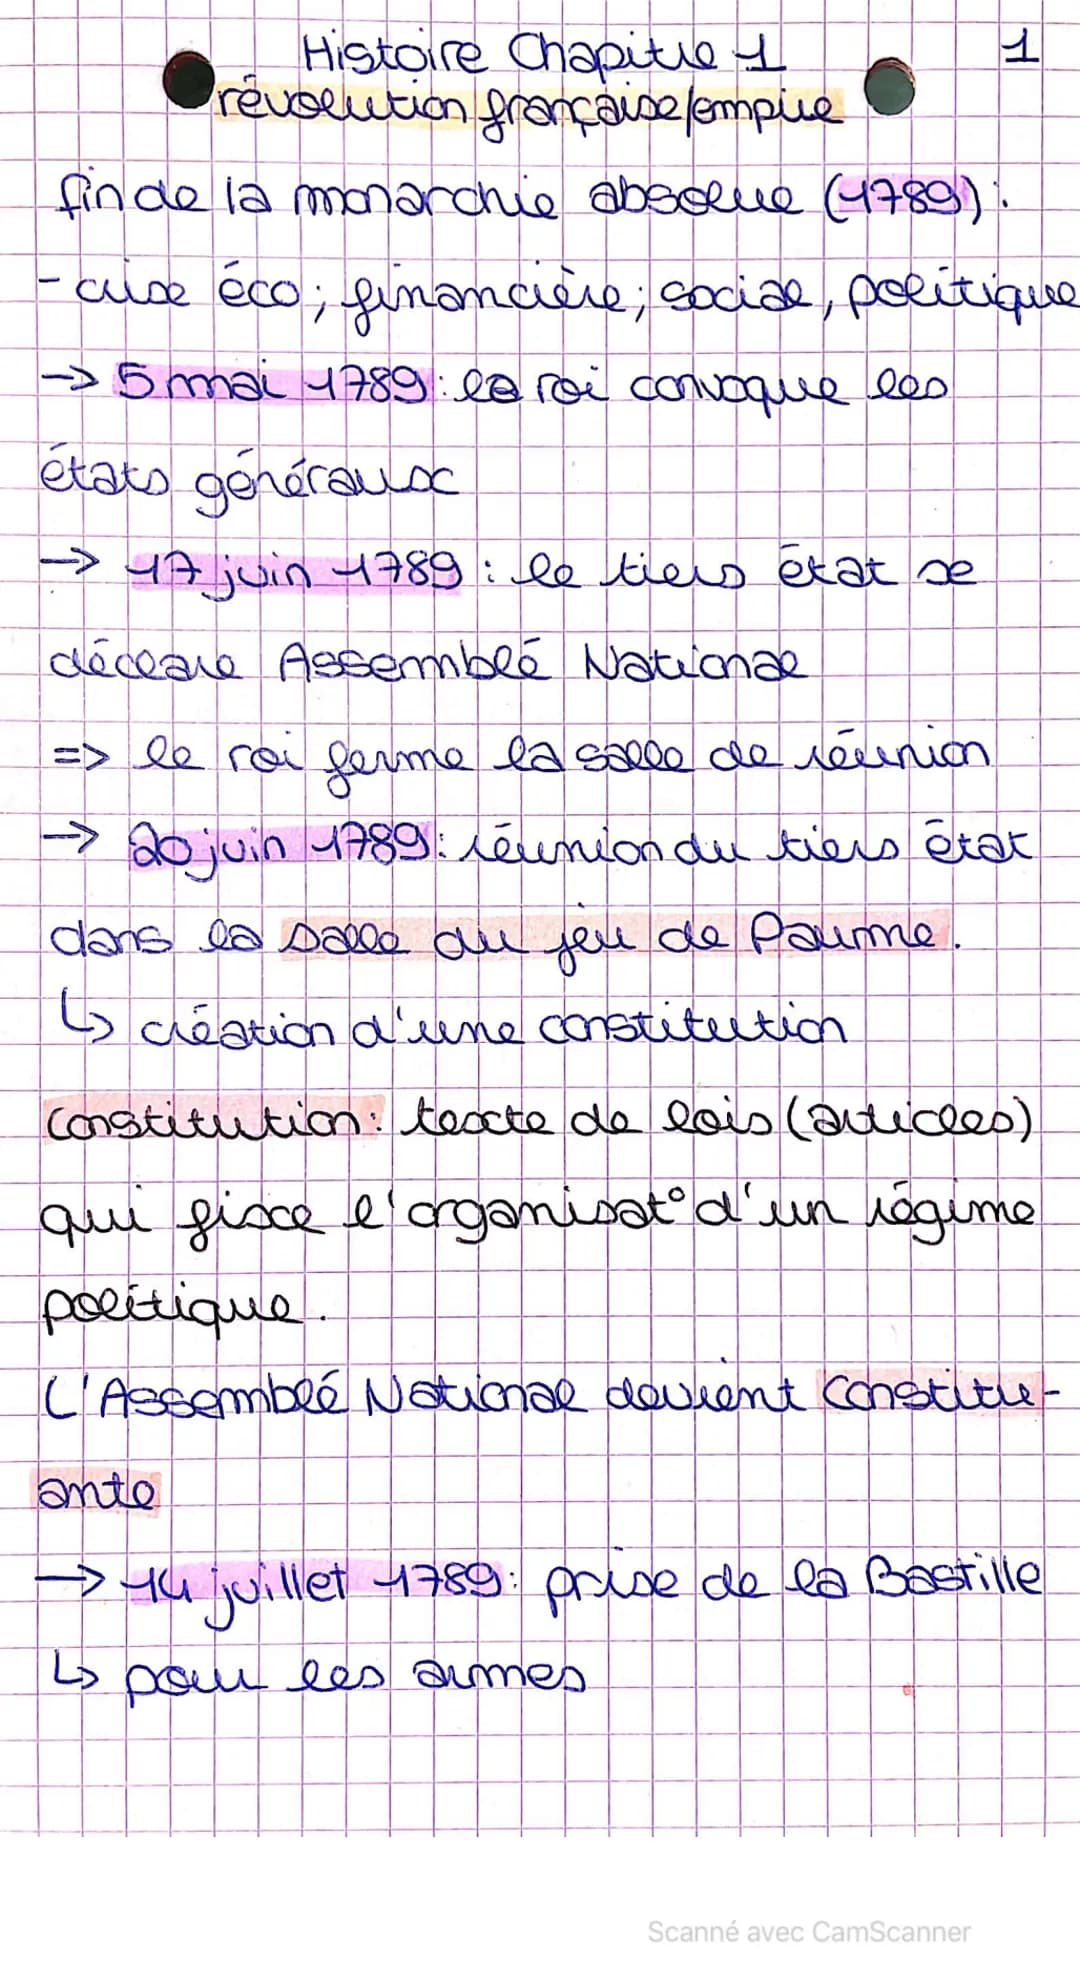 Histoire Chapitre 1
1
révolution française/empire
fin de la monarchie absolue (1789) :
- crise éco ; financière ; sociale, politique
-> 5 mai 1789 : le roi convoque les
états généraux
-> 17 juin 1789 : le tiers état se
déclare Assemblé Nationale
=> le roi ferme la salle de réunion
-> 20 juin 1789 : réunion du tiers état
dans la salle du jeu de Paume.
↳ création d'une constitution
Constitution : texte de lois (articles)
qui fixe l'organisat° d'un régime
politique.
L'Assemblé Nationale devient Constitu-
ante
-> 14 juillet 1789 : prise de la Bastille
↳ pour les armes
Scanné avec CamScanner